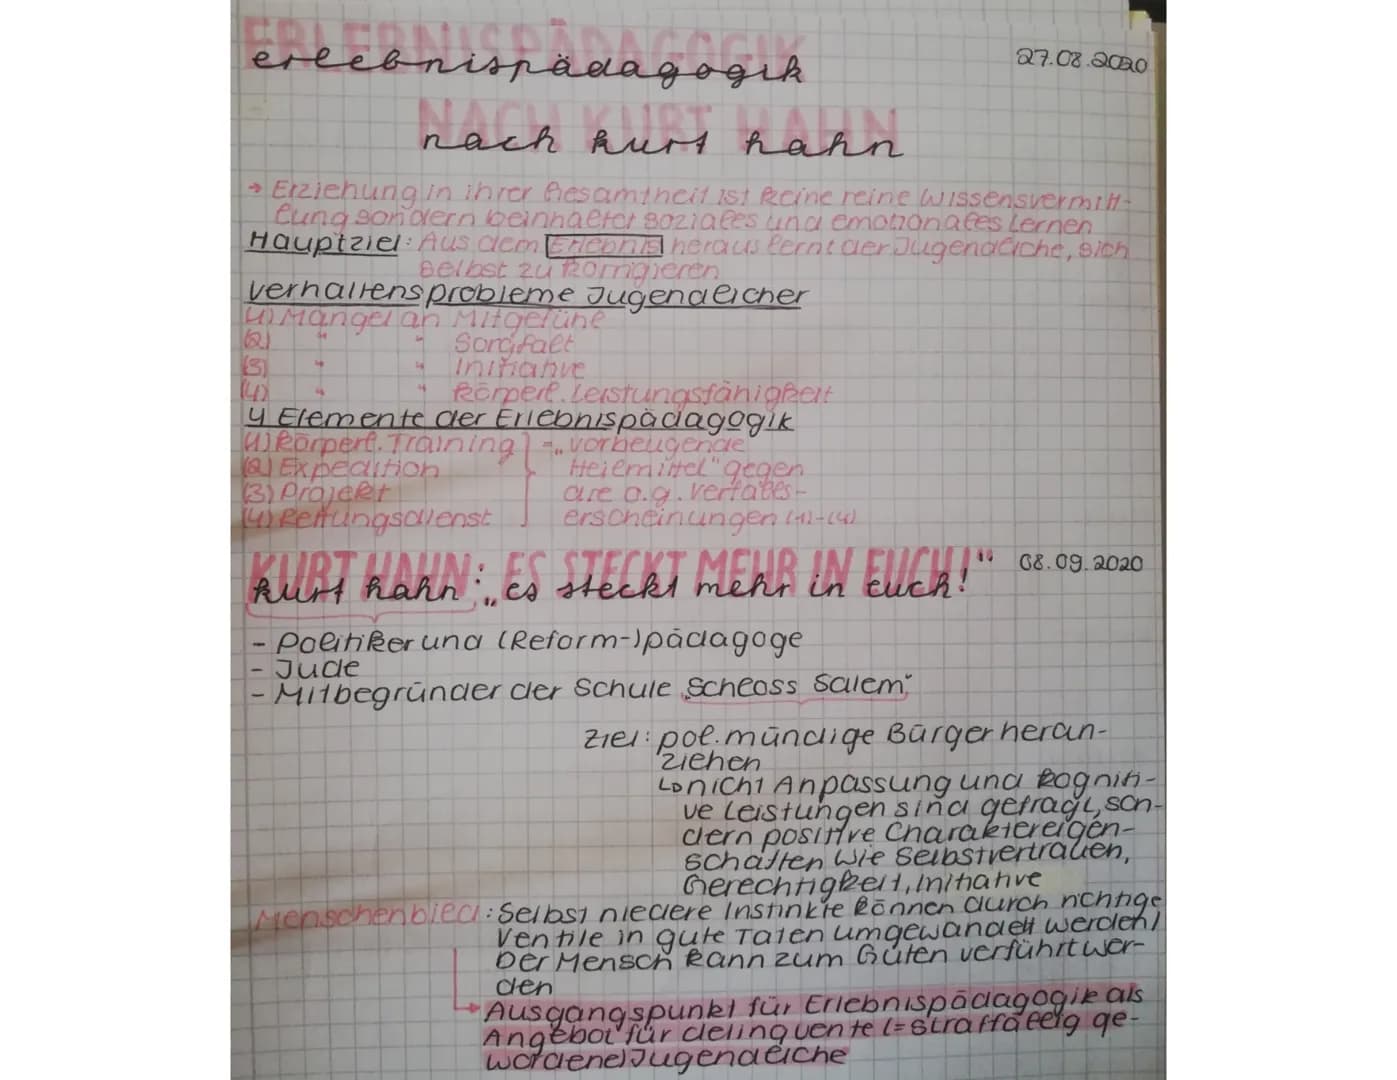 ERLEBNISPÄDAGOGIK
erlebnispädagogik
27.08.2020
NACH KURT HAHN
nach kurt hahn
→ Erziehung in ihrer Gesamtheit ist keine reine Wissensvermitt-
lung sondern beinhaltet soziales und emotionales Lernen
Hauptziel: Aus dem Erlebnis heraus lernt der Jugendliche, sich
selbst zu korrigieren
Verhaltensprobleme Jugendlicher
(1) Mangel an Mitgefühl
(2) " " Sorgfalt
(3) " " Initiative
(4) " " körperl. Leistungsfähigkeit
4 Elemente der Erlebnispädagogik
(1) körperl. Training
(2) Expedition
(3) Projekt
(4) Rettungsdienst
= „vorbeugende
Heilmittel" gegen
die o.g. Verfalls-
erscheinungen (1)-(4)
KURT HAHN: ES STECKT MEHR IN EUCH!"
kurt hahn: „es steckt mehr in euch!"
08.09.2020
- Politiker und (Reform-)pädagoge
- Jude
- Mitbegründer der Schule „Schloss Salem"
Ziel: pol. mündige Bürger heran-
ziehen
↳ nicht Anpassung und kogniti-
ve Leistungen sind gefragt, son-
dern positive Charaktereigen-
schaften wie Selbstvertrauen,
Gerechtigkeit, Initiative
Menschenbild: Selbst niedere Instinkte können durch richtige
Ventile in gute Taten umgewandelt werden/
Der Mensch kann zum Guten verführt wer-
den
→ Ausgangspunkt für Erlebnispädagogik als
Angebot für delinquente (= straffällig ge-
wordene) Jugendliche